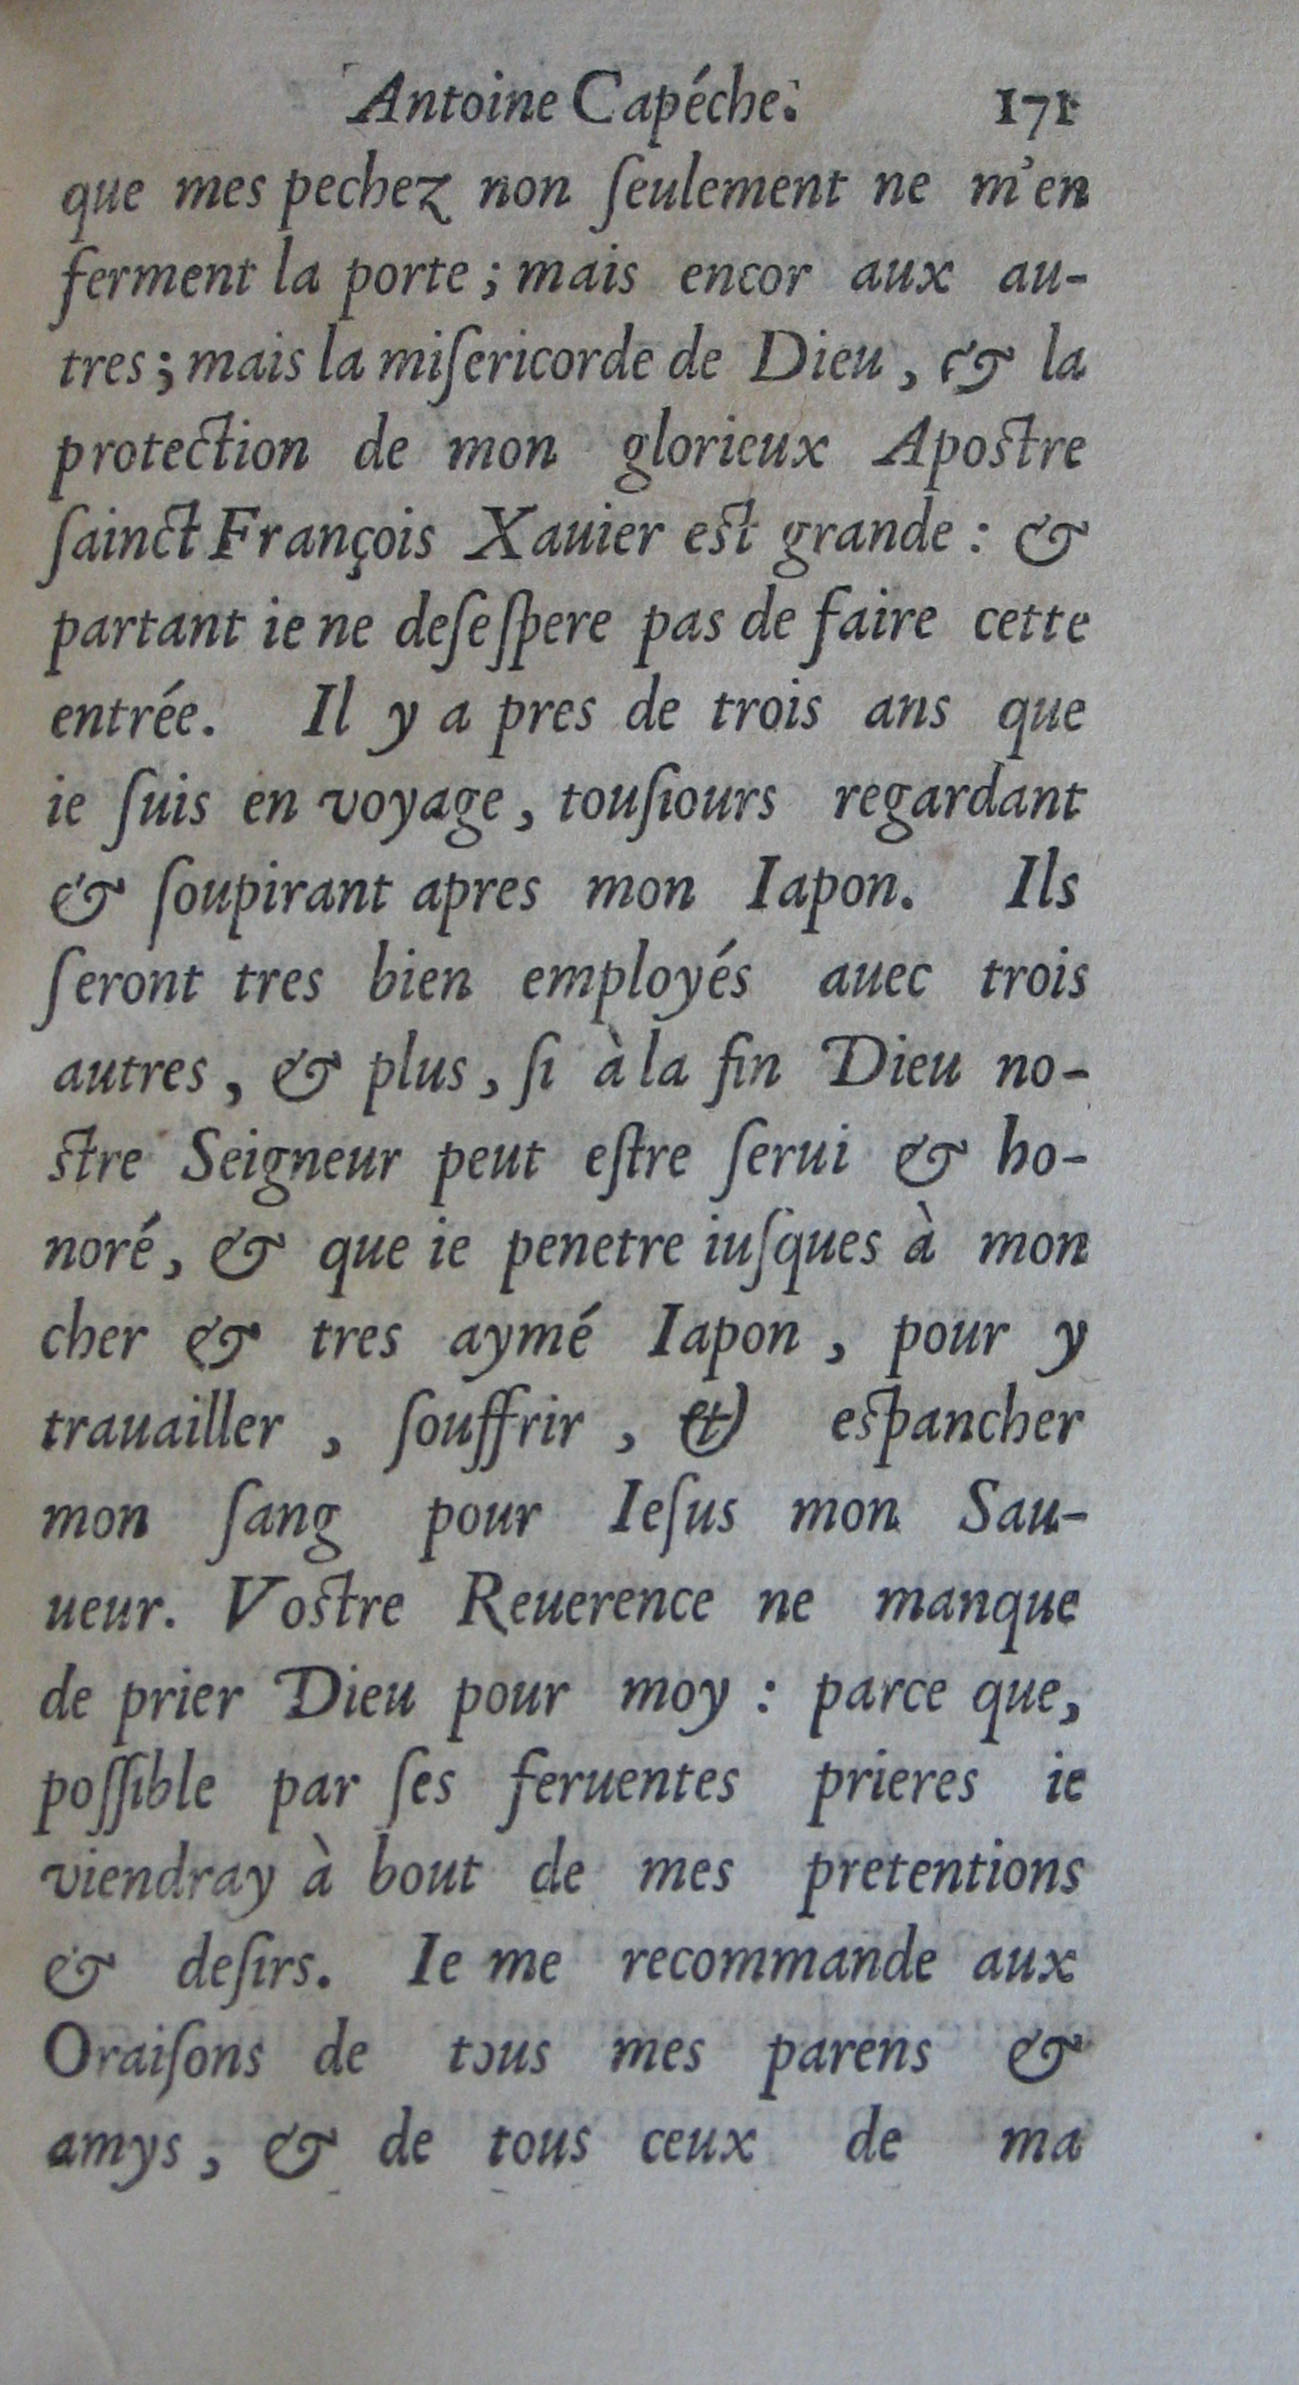 Antoine Capéche. 171
que mes pechez non ſeulement ne m'en
ferment la porte ; mais encor aux au-
tres ; mais la miſericorde de Dieu , & la
protection de mon glorieux Apostre
ſainct François Xauier est grande : &
partant ie ne deſeſpere pas de faire cette
entrée. Il y a pres de trois ans que
ie ſuis en voyage , touſiours regardant
& ſoupirant apres mon Iapon. Ils
ſeront tres bien employés auec trois
autres , & plus , ſi à la fin Dieu no-
stre Seigneur peut eſtre ſerui & ho-
noré , & que ie penetre iuſques à mon
cher & tres aymé Iapon , pour y
trauailler , ſouffrir , & espancher
mon ſang pour Ieſus mon Sau-
ueur. Vostre Reuerence ne manque
de prier Dieu pour moy : parce que,
poſſible par ſes feruentes prieres ie
viendray à bout de mes pretentions
& deſirs. Ie me recommande aux
Oraiſons de tous mes parens &
amys , & de tous ceux de ma